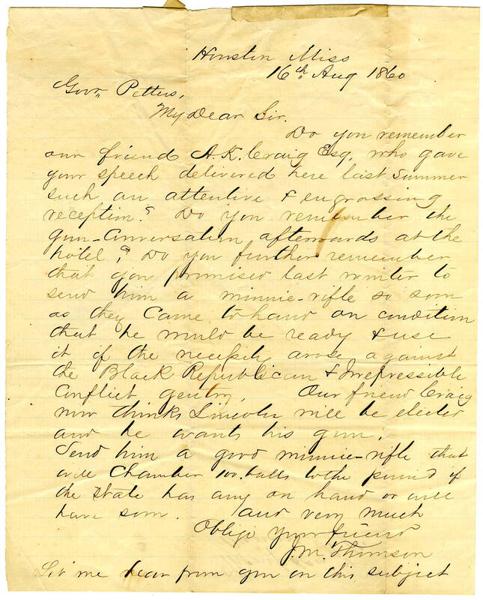 Houston Miss
16th Aug 1860
Govr. Pettus,
My Dear Sir.
Do you remember
our friend A.K. Craig Esq. who gave
your speech delivered here last summer
such an attentive & engrossing
reception? Do you remember the
gun-conversation afterwards at the
hotel? Do you further remember
that you promised last winter to
send him a minnie-rifle so soon
as they came to hand on condition
that he would be ready & use
it if the necessity arose against
the Black Republican & Irrepressible
Conflict gentry. Our friend Craig
now thinks Lincoln will be elected
and he wants his gun.
Send him a good minnie-rifle that
will chamber balls to the pound if
the State has any on hand or will
have soon. And very much
Oblige your friend
J.M. Thomson
Let me hear from you on this subject